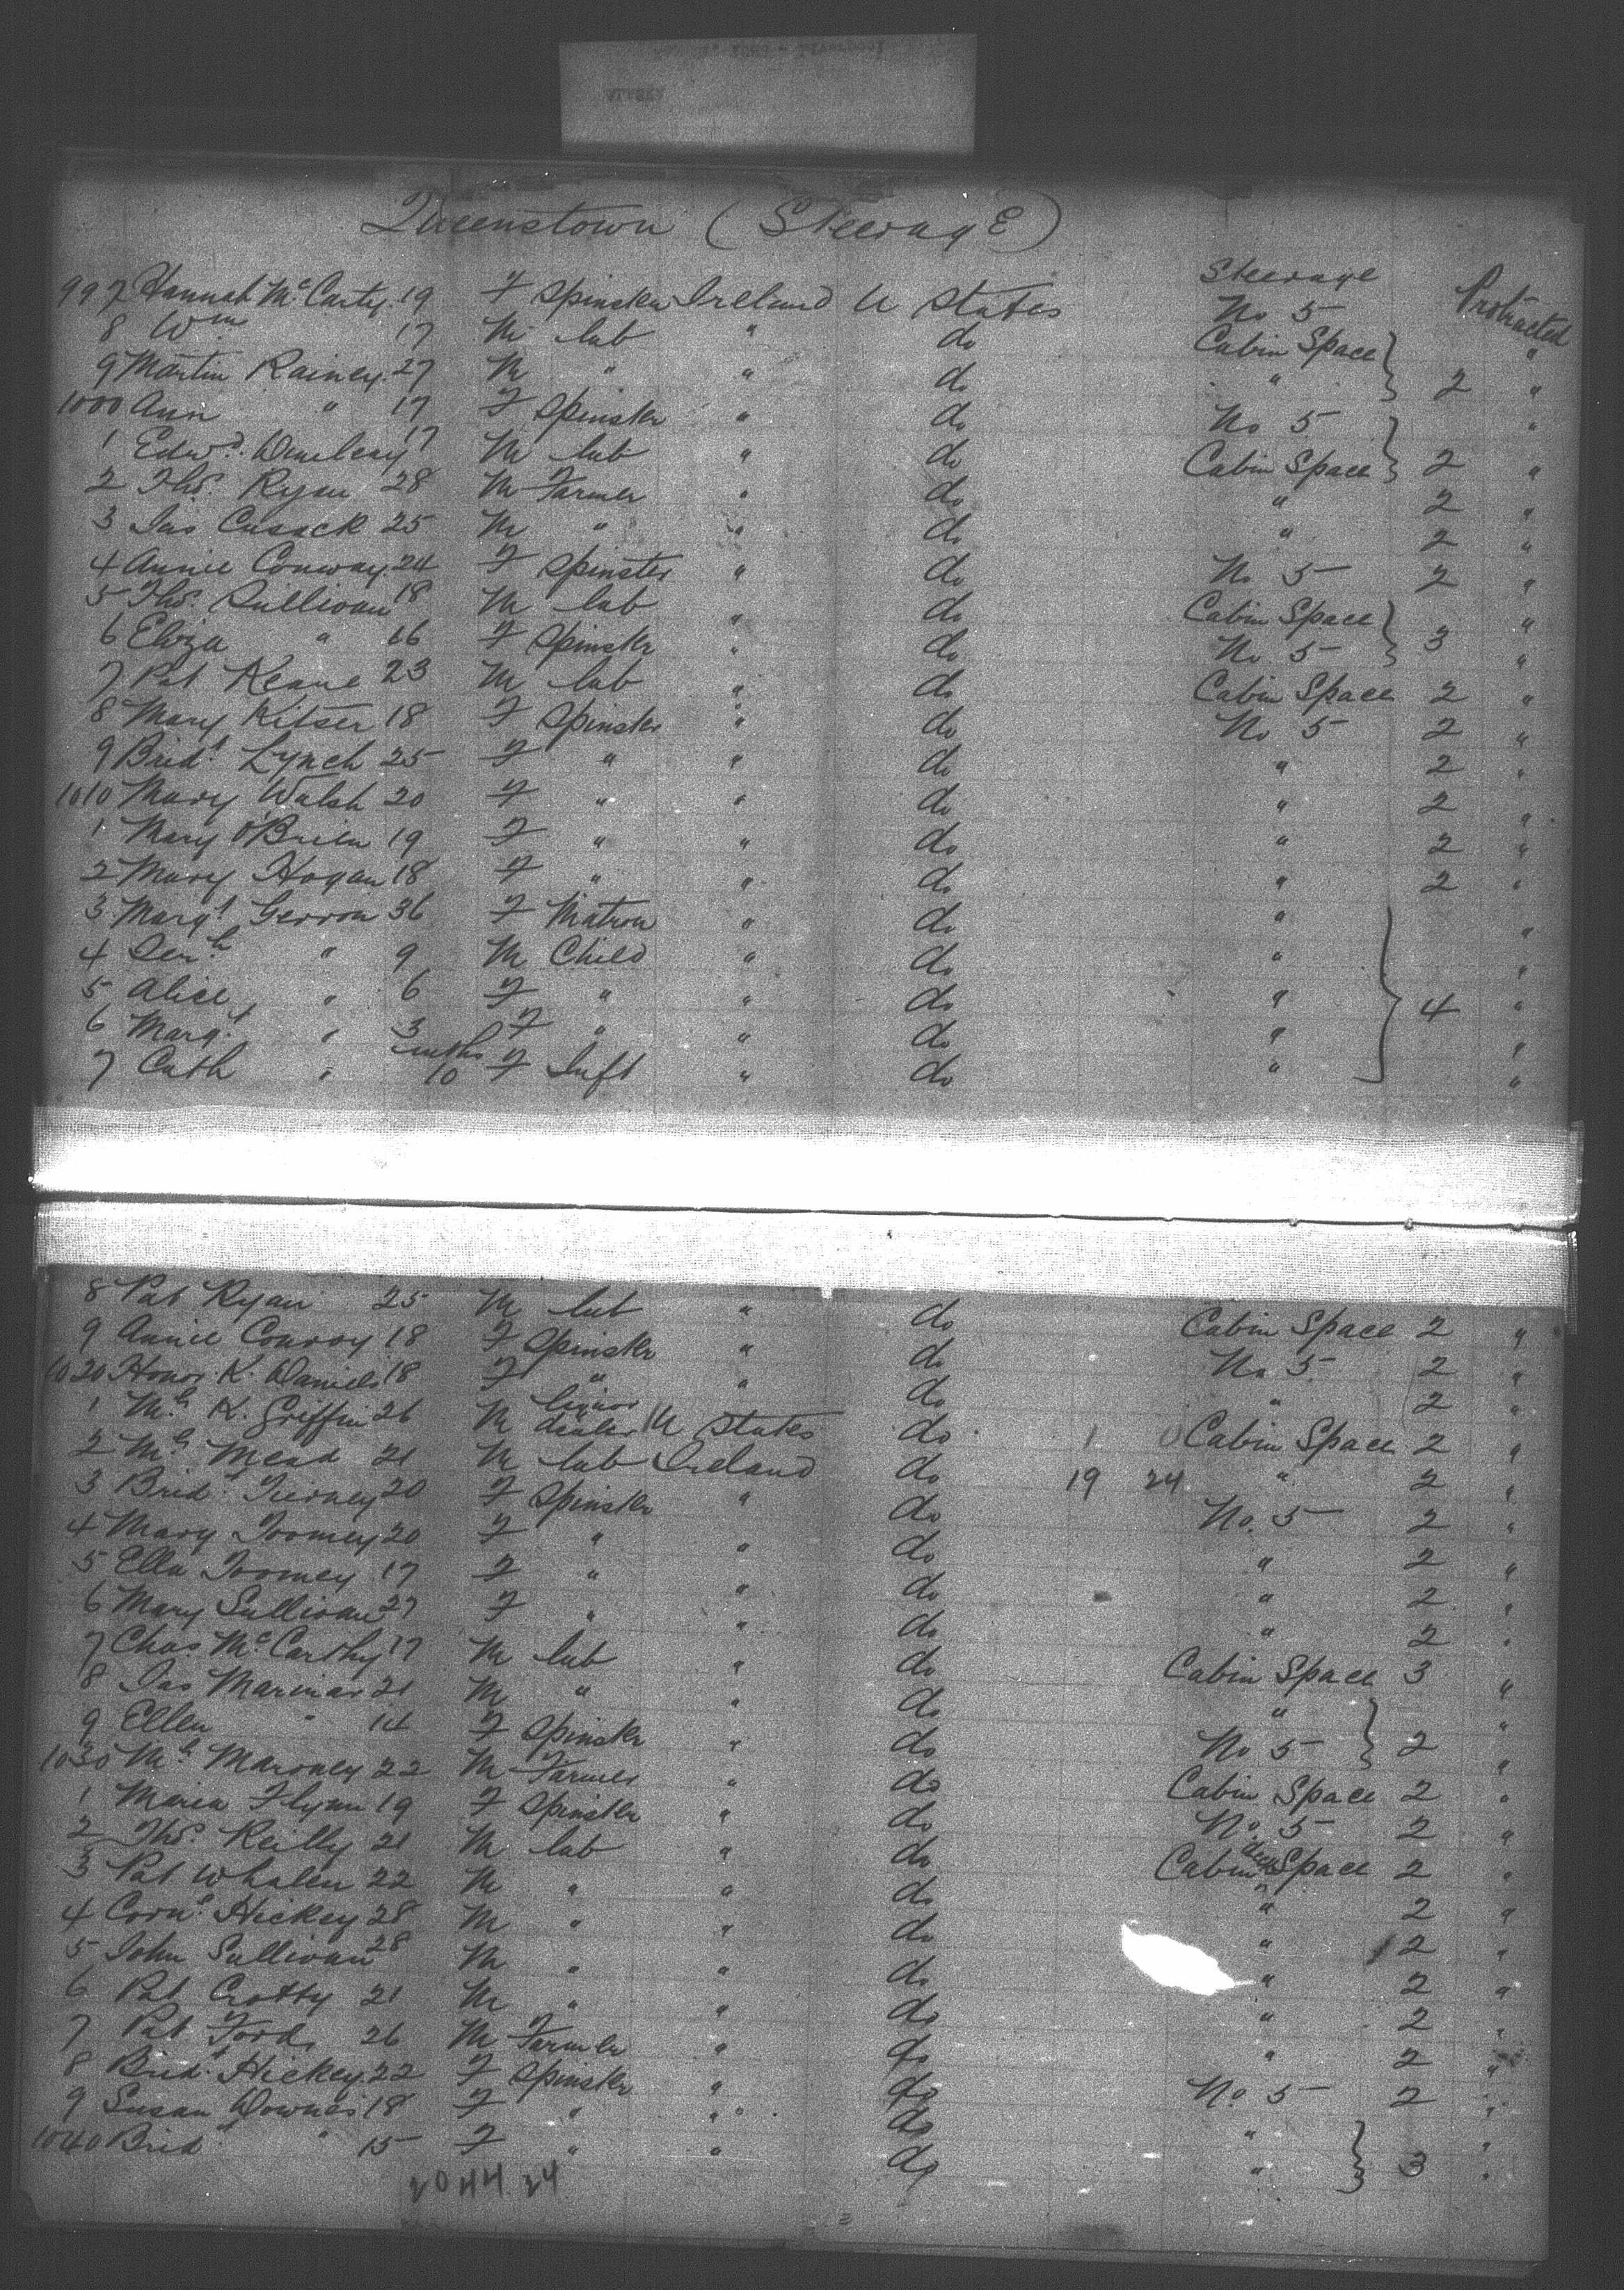 Liverpool
ALASKA
Queenstown (Steerage)
Steerage
997 Hannah McCarty 19 F Spinster Ireland U States No 5 Protracted
8 Wm 17 M lab " do Cabin Space } "
9 Martin Rainey 27 M " " do " } 2 "
1000 Ann " 17 F Spinster " do No 5 } "
1 Edwd. 17 M lab " do Cabin Space } 2 "
2 Thos. Ryan 28 M Farmer " do " 2 "
3 Jas Cusack 25 M " " do " 2 "
4 Annie Conway 24 F Spinster " do No 5 2 "
5 Thos. Sullivan 18 M lab " do Cabin Space } "
6 Eliza " 16 F Spinster " do No 5 } 3 "
7 Pat Keane 23 M lab " do Cabin Space 2 "
8 Mary Kitser 18 F Spinster " do No 5 2 "
9 Bridt Lynch 25 F " " do " 2 "
1010 Mary Walsh 20 F " " do " 2 "
1 Mary O'Brien 19 F " " do " 2 "
2 Mary Hogan 18 F " " do " 2 "
3 Margt Gerron 36 F Matron " do " "
4 " 9 M Child " do " "
5 Alice " 6 F " " do " } 4 "
6 Margt " 3 F " " do " "
7 Cath " mths 10 F Inft " do " "
8 Pat Ryan 25 M lab " do Cabin Space 2 "
9 Annie Conroy 18 F Spinster " do No 5 2 "
1020 Honor K. Daniels 18 F " " do " 2 "
1 Ml K. Griffin 26 M liquor dealer U States do Cabin Space 2 "
2 Ml Mead 21 M lab Ireland do 19 24 " 2 "
3 Bridt Tierney 20 F Spinster " do No. 5 2 "
4 Mary Toomey 20 F " " do " 2 "
5 Ella Toomey 17 F " " do " 2 "
6 Mary Sullivan 27 F " " do " 2 "
7 Chas McCarthy 17 M lab " do Cabin Space 3 "
8 Jas Marinar 21 M " " do " } "
9 Ellen " 14 F Spinster " do No 5 } 2 "
1030 Ml Maroney 22 M Farmer " do Cabin Space 2 "
1 Maria Flynn 19 F Spinster " do No. 5 2 "
2 Thos. Reilly 21 M lab " do Cabin deck Space 2 "
3 Pat Whalen 22 M " " do " 2 "
4 Corns. Hickey 28 M " " do " 2 "
5 John Sullivan 28 M " " do " 2 "
6 Pat Crotty 21 M " " do " 2 "
7 Pat Ford 26 M Farmer " do " 2 "
8 Bridt. Hickey 22 F Spinster " do No. 5 2 "
9 Susan Downes 18 F " " do " } "
1040 Bridt " 15 F " " do " } 3 "
20 44 24